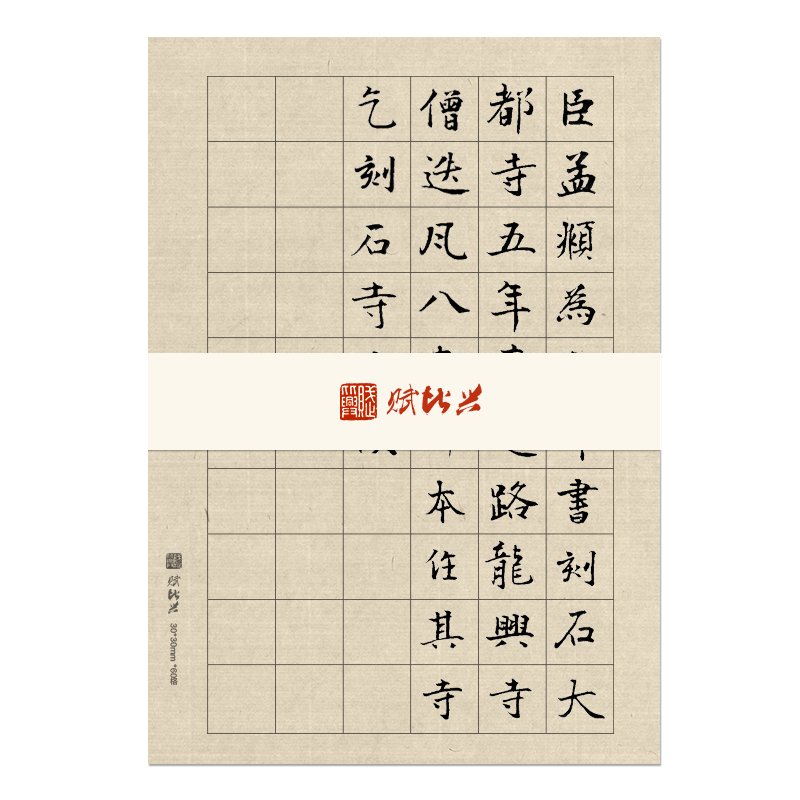 臣孟頫為
書刻石大
都寺五年
路龍興寺
僧迭凡八
本住其寺
乞刻石寺
赋比兴
赋比兴 30*30mm *60格